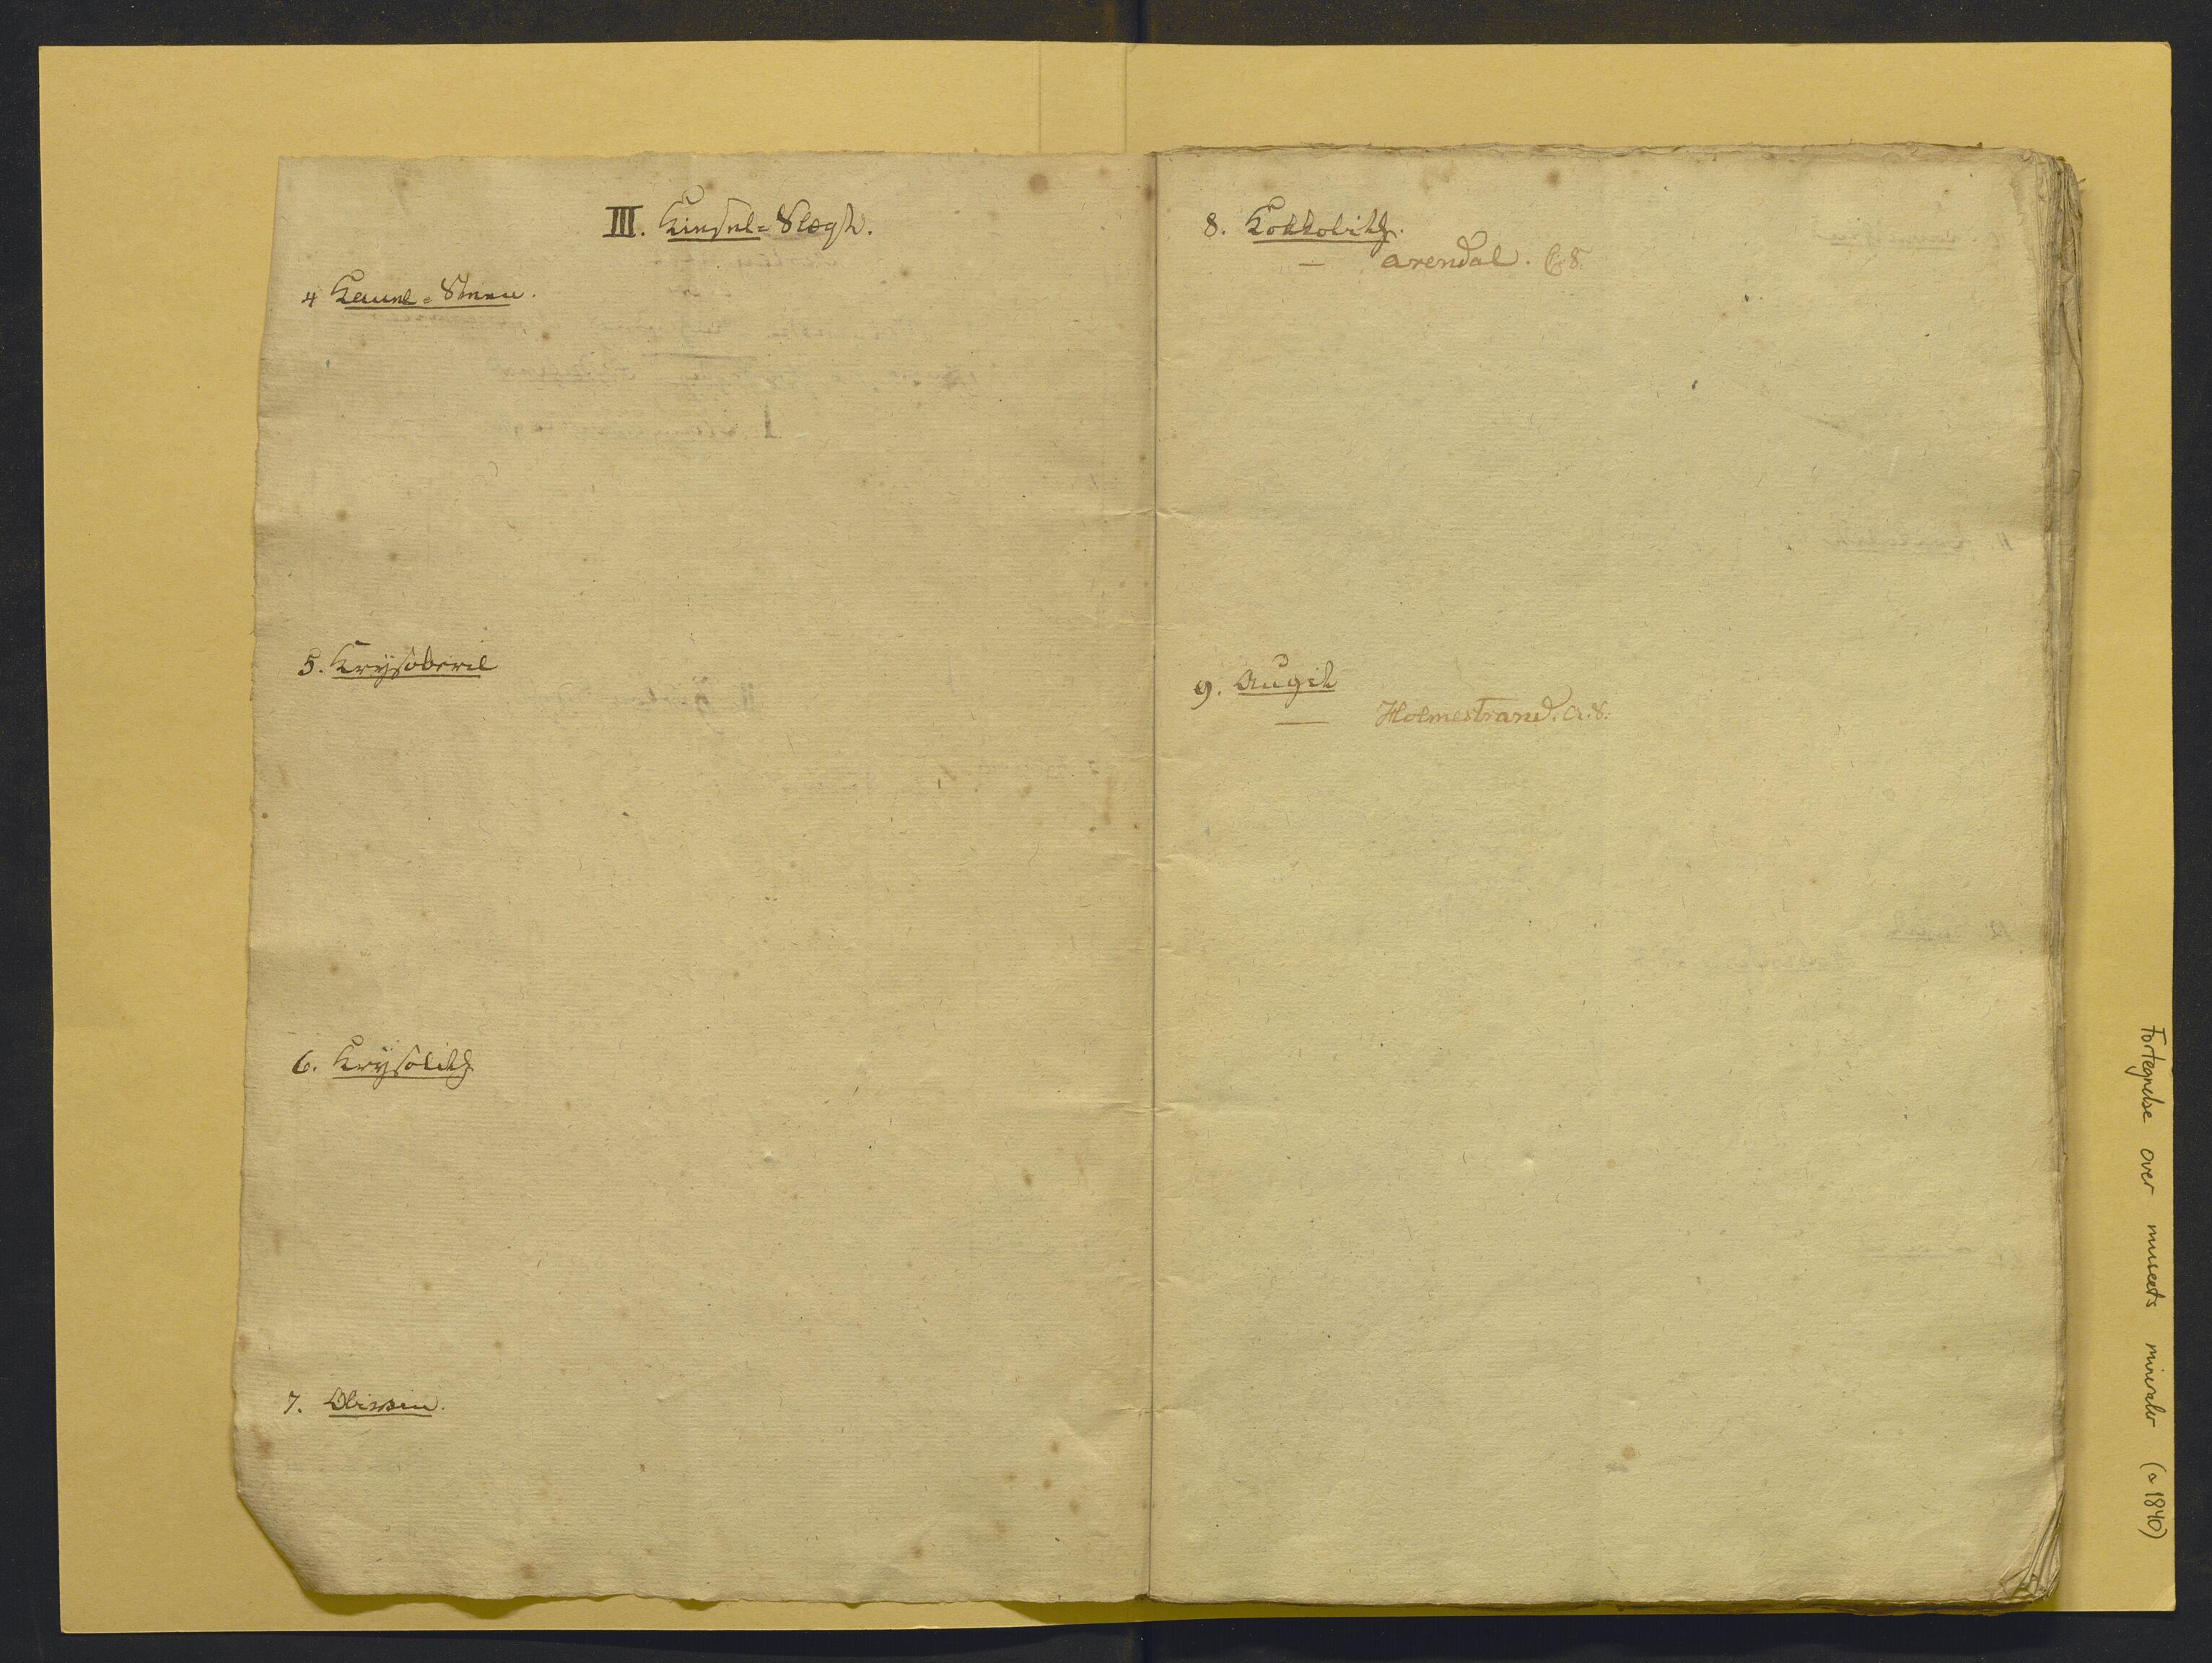 III. Kiesel=Slægt.
4 Kanel=Steen.
5. Krÿsoberil
6. Krÿsolith
7. Olivin.
8. Kokkolith.
— Arendal. C. S.
9. Augit
— Holmestrand. A. S.
Fortegnelse over museets mineraler (ca 1840)